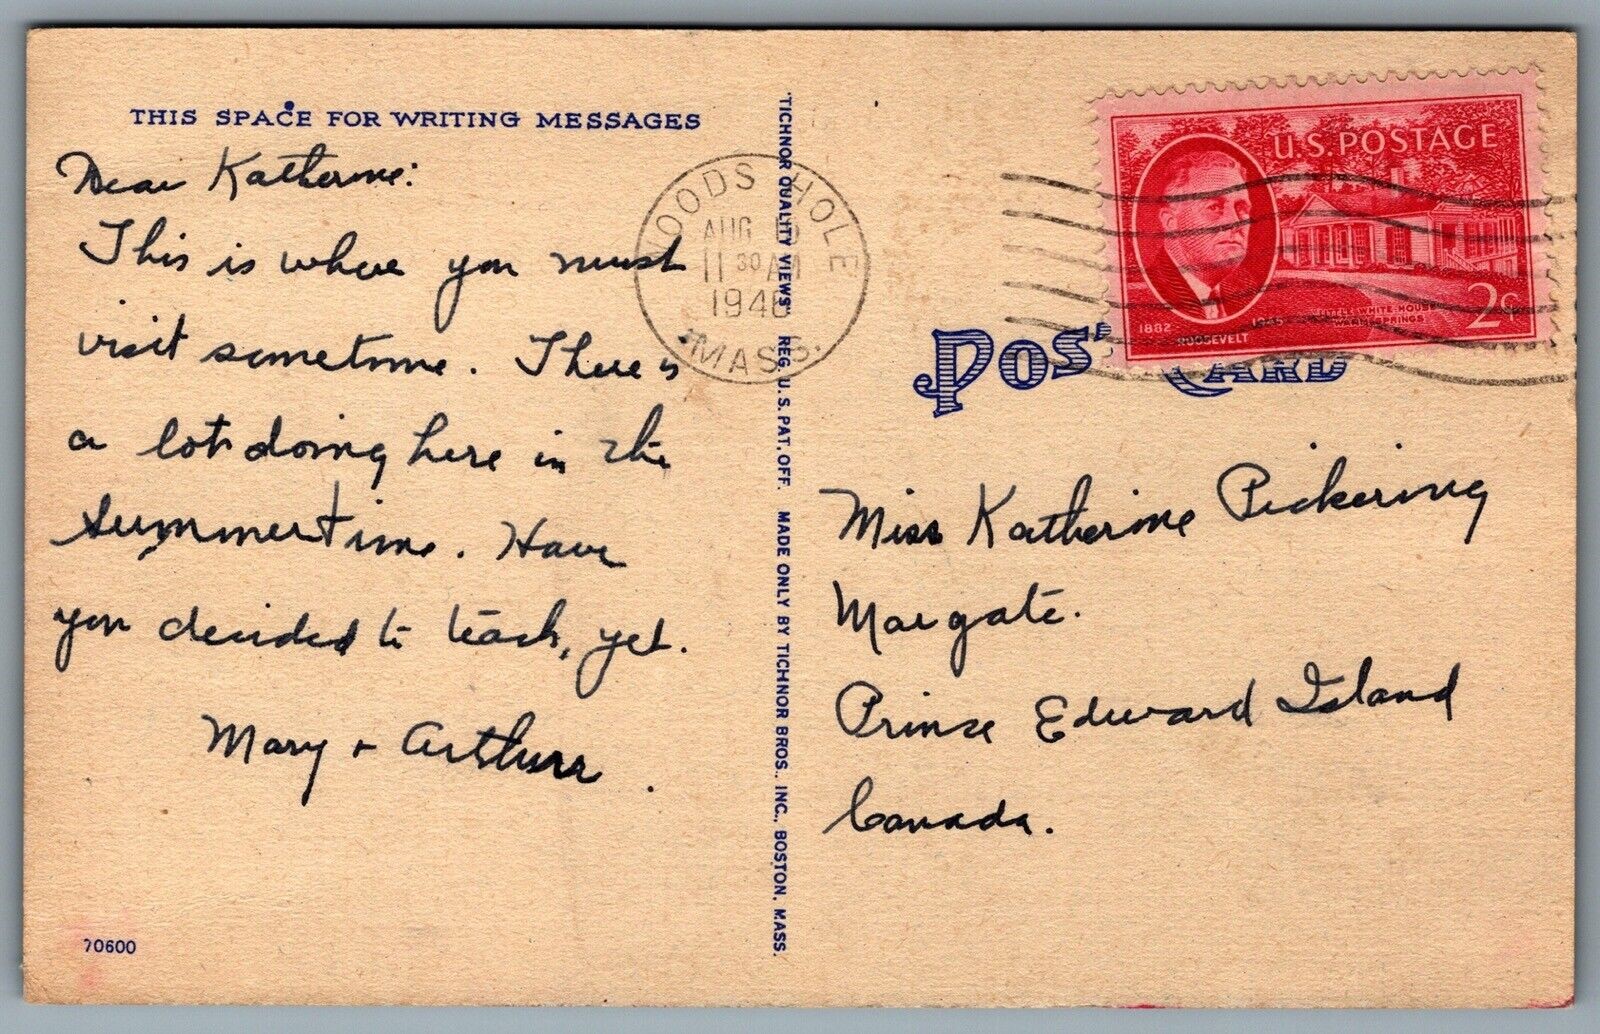 THIS SPACE FOR WRITING MESSAGES
Dear Katherine:
This is where you must
visit sometime. There is
a lot doing here in the
summertime. Have
you decided to teach, yet.
Mary + Arthur
70600
"TICHNOR QUALITY VIEWS" REG. U.S. PAT. OFF. MADE ONLY BY TICHNOR BROS., INC., BOSTON, MASS.
WOODS HOLE
AUG
11 30 AM
1946
MASS.
U.S. POSTAGE
1882 1945
ROOSEVELT
LITTLE WHITE HOUSE
WARM SPRINGS
2¢
POST CARD
Miss Katherine Pickering
Margate.
Prince Edward Island
Canada.